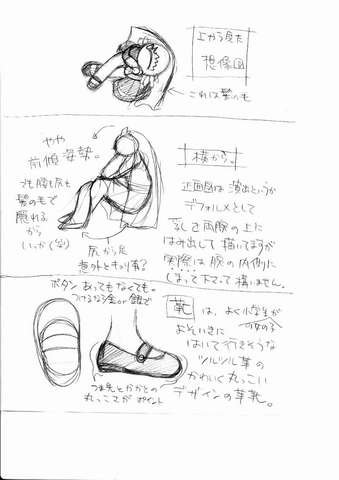 上から見た
想像図
これは髪の毛
やや
前傾姿勢。
でも胸も尻も
髪の毛で
隠れる
から
いっか(笑)
尻から足
意外とキョリ有る?
横から。
正面図は演出というか
デフォルメとして
乳を両腕の上に
はみ出して描いてますが
実際は腕の内側に
しまって下さって構いません。
ボタンあってもなくても。
つけるなら金or銀で
つま先とかかとの
丸っこさがポイント
靴は、よく小学生が
女の子
よそいきに
はいて行きそうな
ツルツル革の
かわいく丸っこい
デザインの革靴。